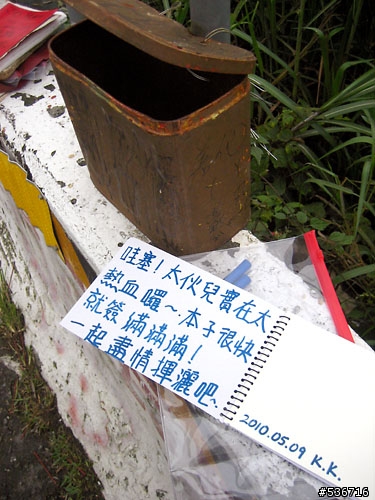 哇塞!大伙兒實在太
熱血囉~本子很快
就簽滿滿滿!
一起盡情揮灑吧、
2010.05.09 K.K.
#536716